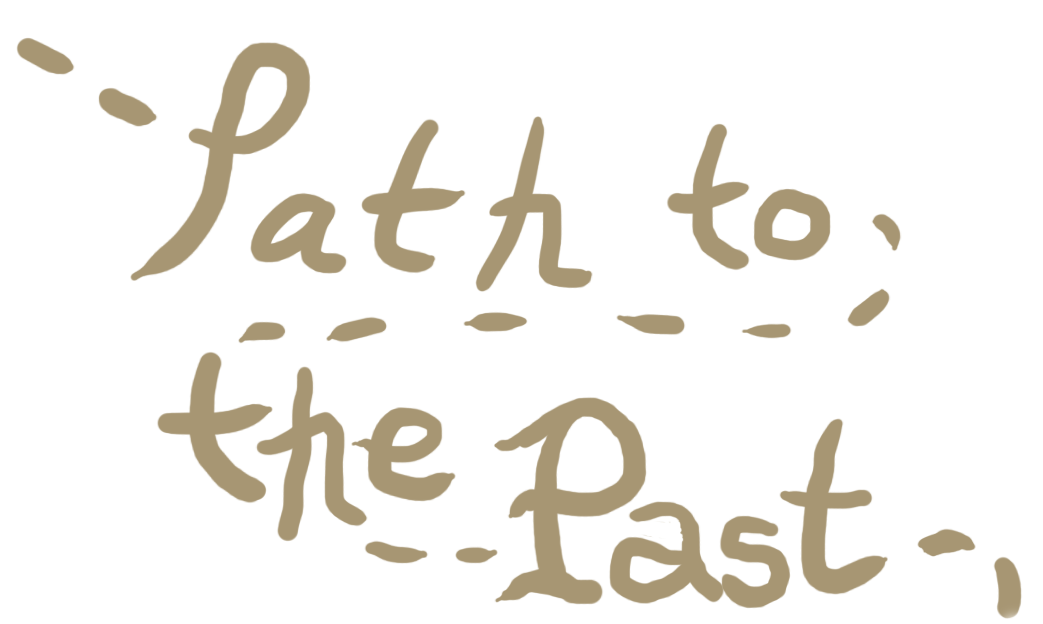 Path to
the Past